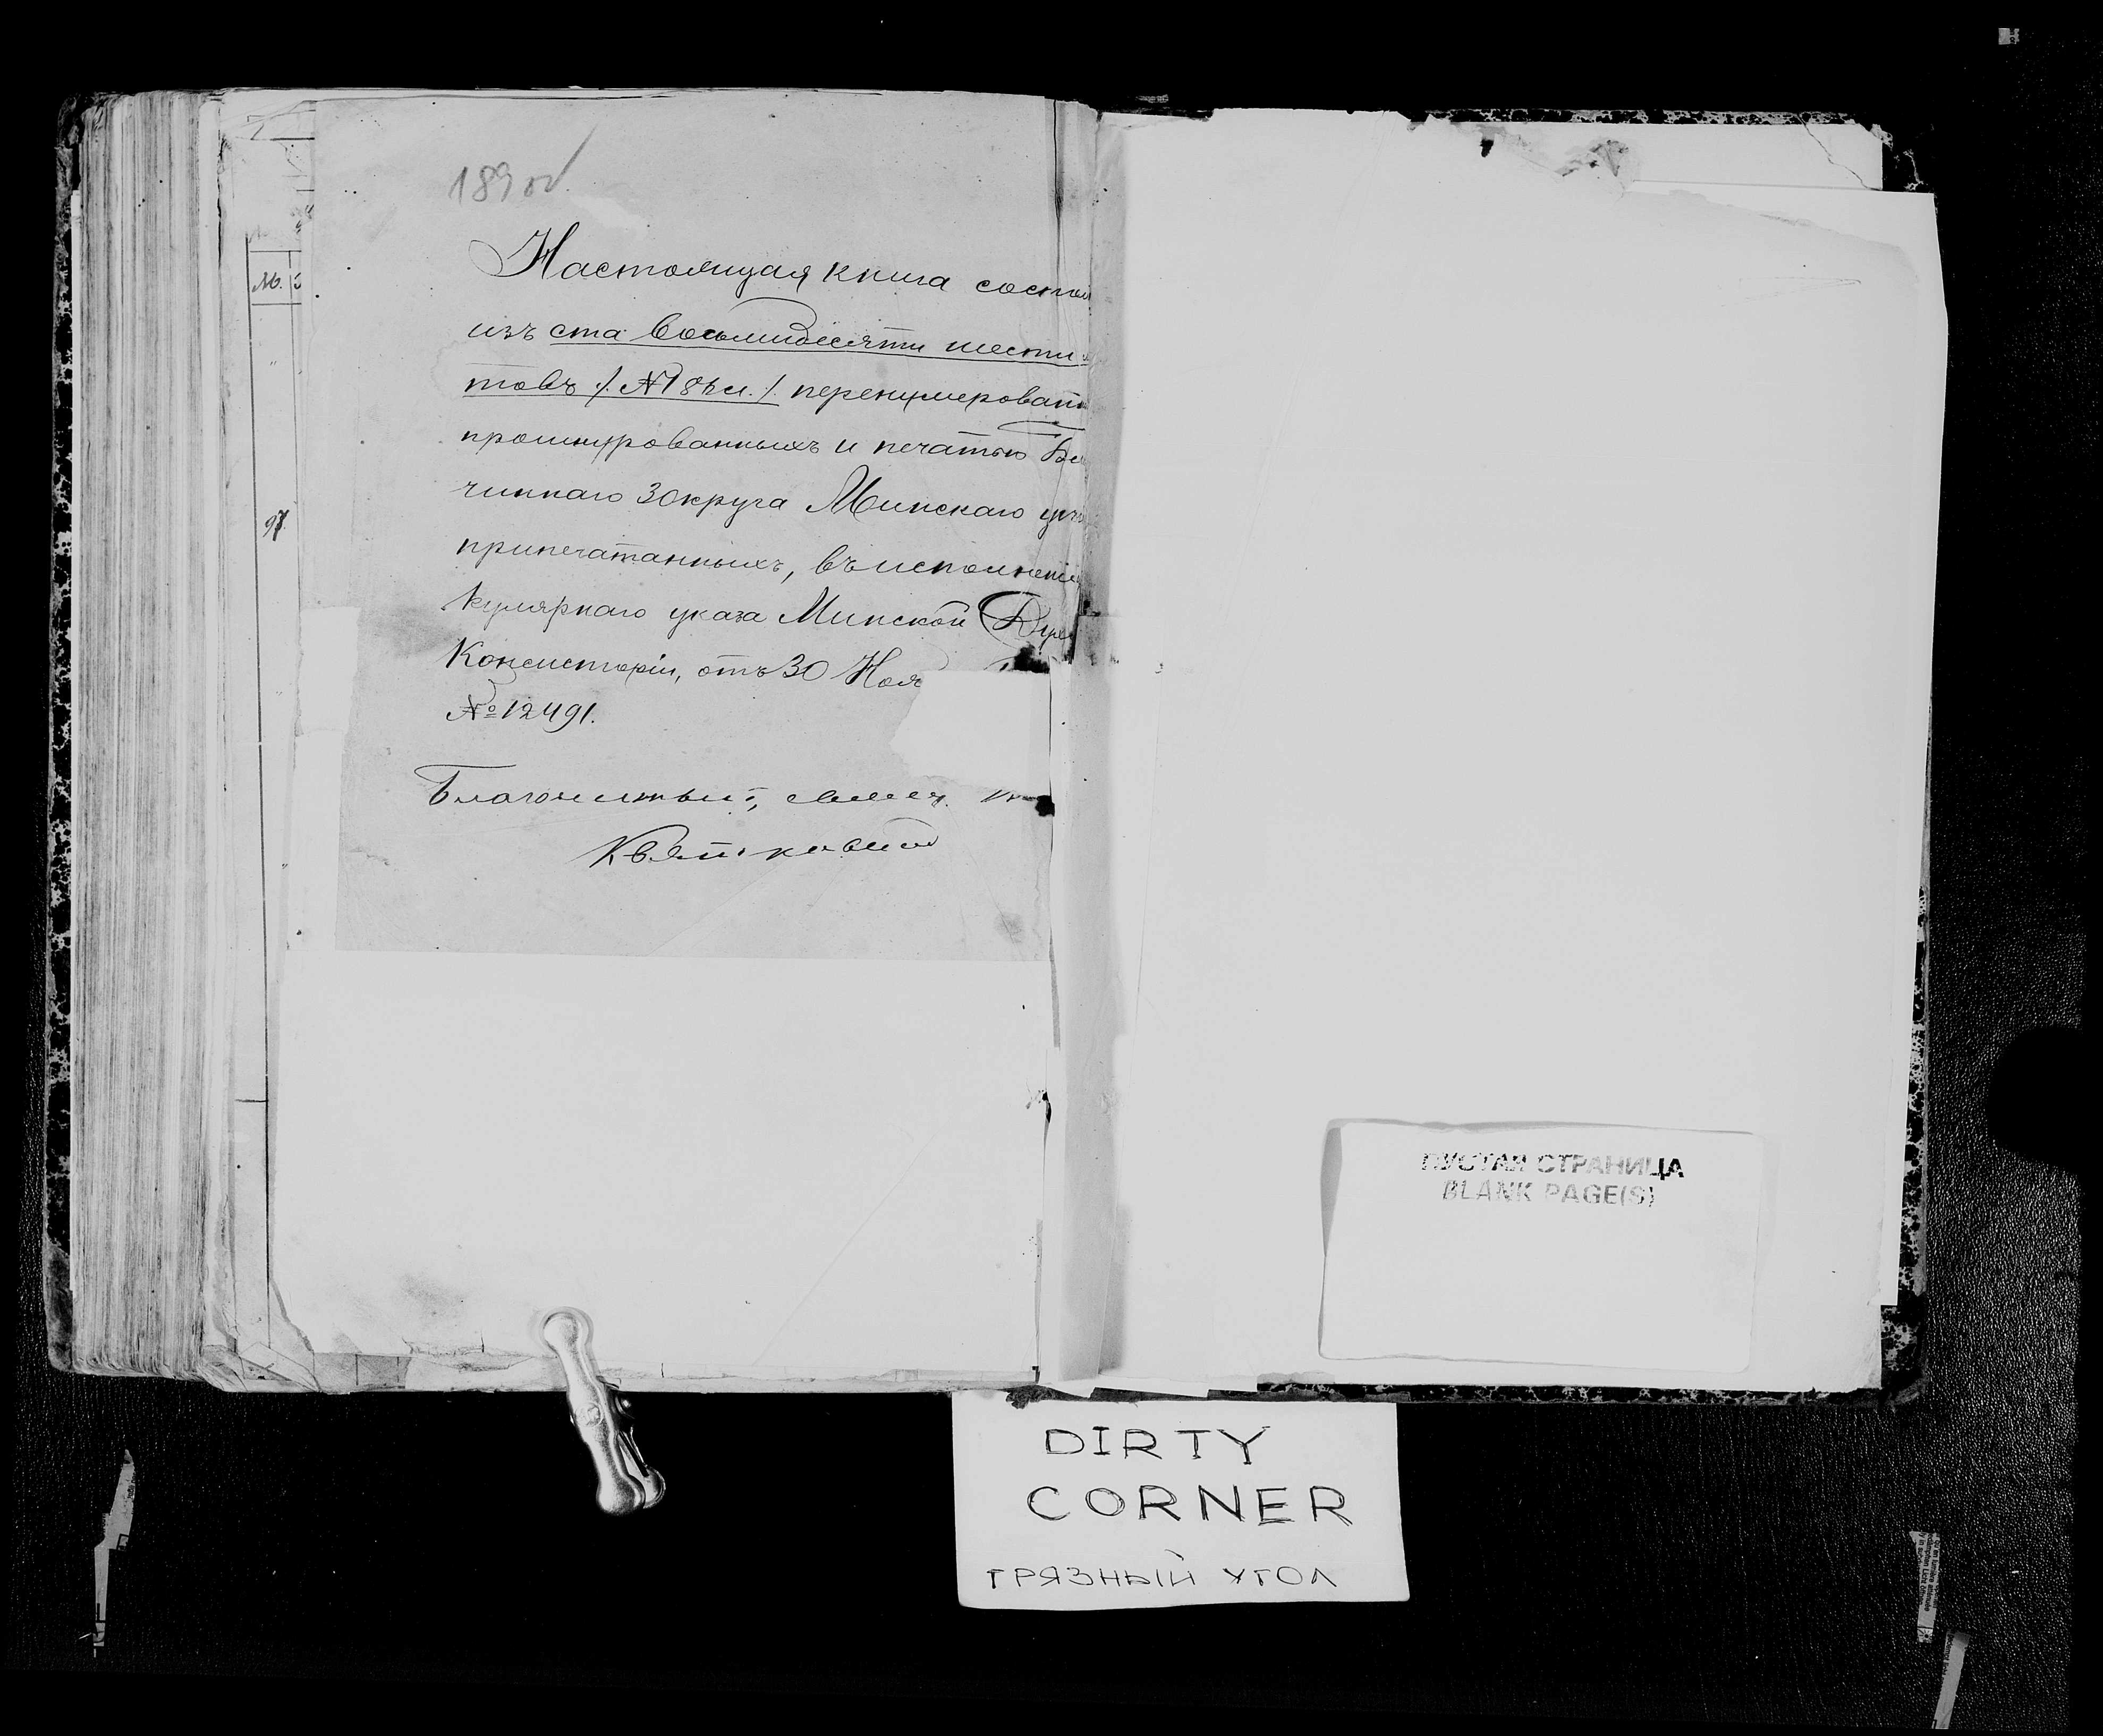 1890 г.
Настоящая книга состои
изъ ста восьмидесяти шести
товъ /: №186 л. :/ перенумерован
прошнурованныхъ и печатью Бла
чиннаго 3 округа Минскаго
припечатанныхъ, въ исполненіе
кулярнаго указа Минской Дух
Консисторіи, отъ 30 Ноя
№ 12491.
Благочинный, священ.
М.
97
ПУСТАЯ СТРАНИЦА
BLANK PAGE(S)
DIRTY
CORNER
ГРЯЗНЫЙ УГОЛ